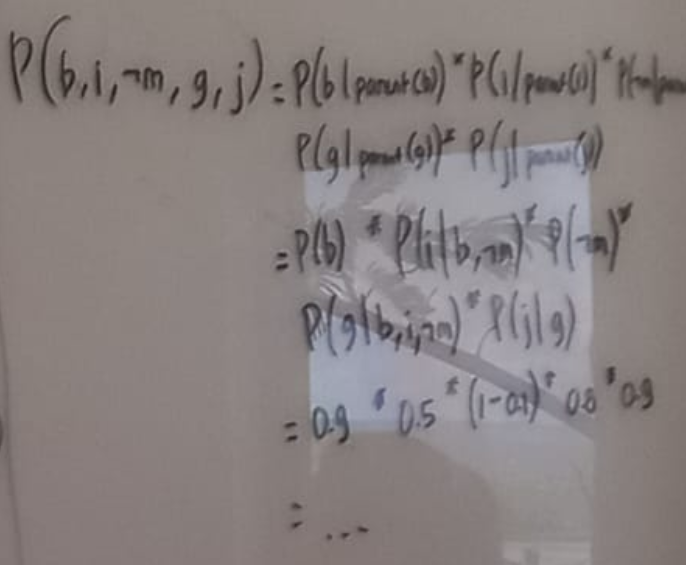 P(b,i,¬m,g,j) = P(b|parent(b)) * P(i|parent(i)) * P(¬m|paren
P(g|parent(g)) * P(j|parent(j))
= P(b) * P(i|b,¬m) * P(¬m) *
P(g|b,i,¬m) * P(j|g)
= 0.9 * 0.5 * (1-0.1) * 0.8 * 0.9
= ...